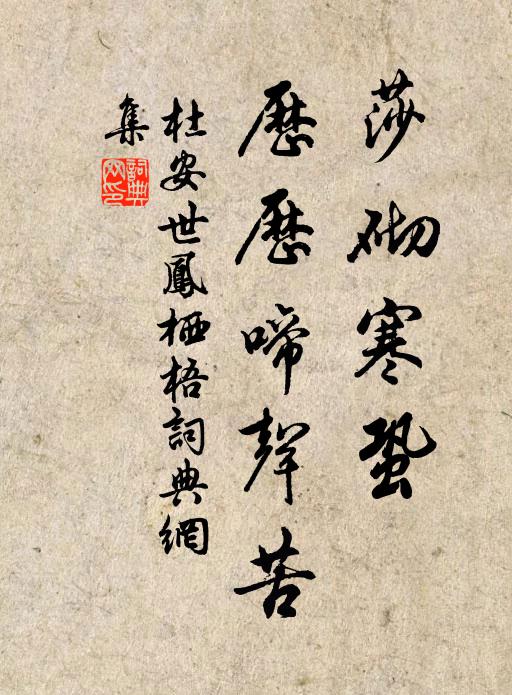 莎砌寒蛩
歷歷啼聲苦
杜安世鳳栖梧詞典網
集
詞典
网印